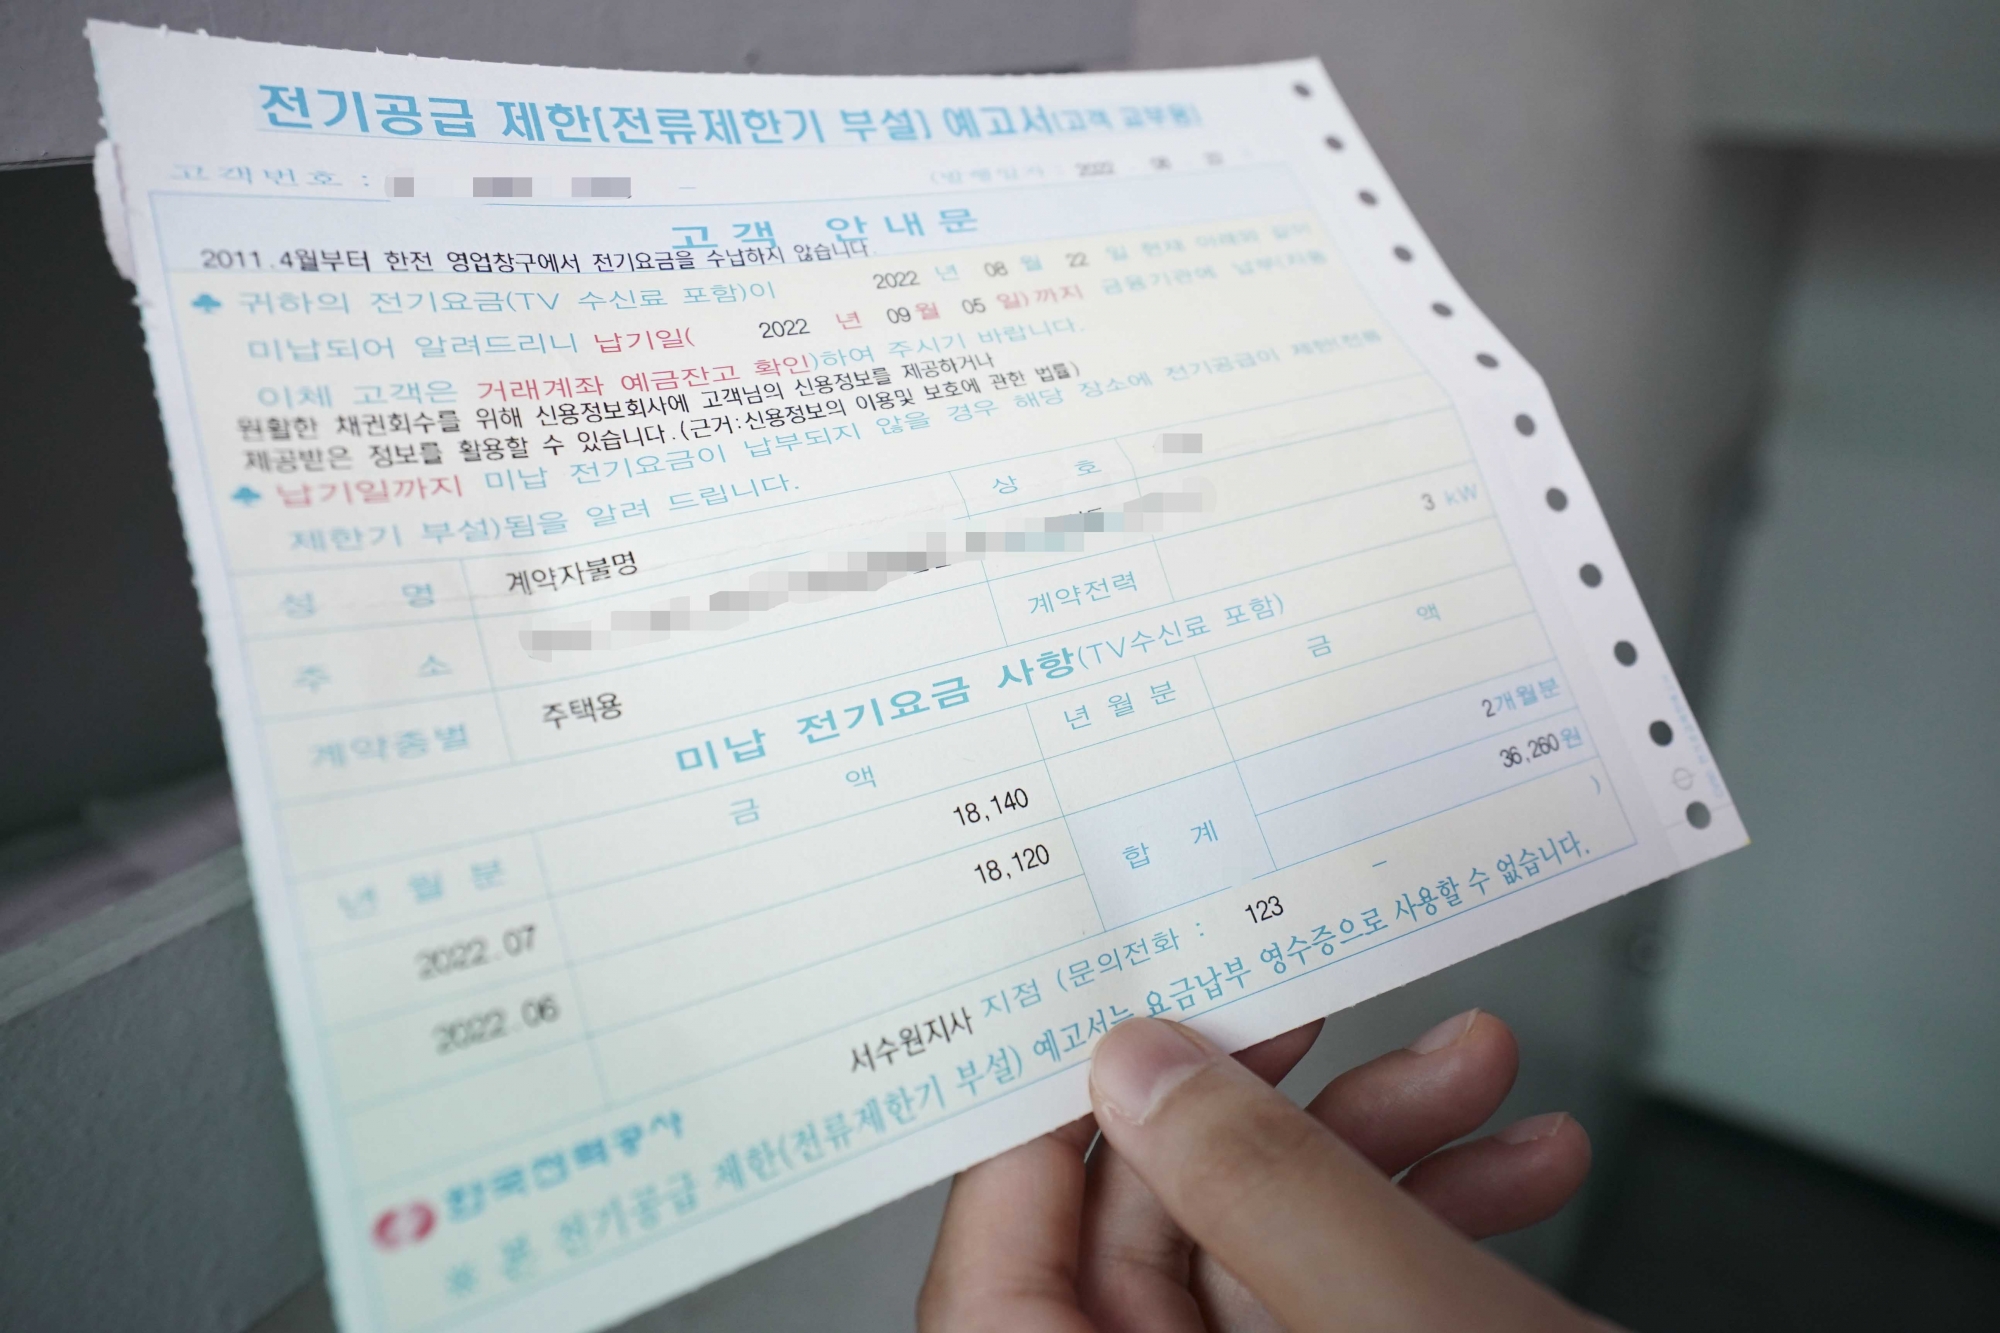 전기공급 제한(전류제한기 부설) 예고서(고객 교부용)
고객번호 :
(발행일자 : 2022 08
고객 안내문
2011.4월부터 한전 영업창구에서 전기요금을 수납하지 않습니다.
♣ 귀하의 전기요금(TV 수신료 포함)이 2022 년 08 월 22 일 현재 아래와 같이
미납되어 알려드리니 납기일( 2022 년 09월 05 일)까지 금융기관에 납부(자동
이체 고객은 거래계좌 예금잔고 확인)하여 주시기 바랍니다.
원활한 채권회수를 위해 신용정보회사에 고객님의 신용정보를 제공하거나
제공받은 정보를 활용할 수 있습니다.(근거:신용정보의 이용및 보호에 관한 법률)
♣ 납기일까지 미납 전기요금이 납부되지 않을 경우 해당 장소에 전기공급이 제한(전류
제한기 부설)됨을 알려 드립니다.
성 명 계약자불명 상 호
주 소
계약종별 주택용 계약전력 3 kW
미납 전기요금 사항(TV수신료 포함)
년 월 분 금 액 년 월 분 금 액
2022.07 18,140
2022.06 18,120
합 계 2개월분
36,260원
한국전력공사 서수원지사 지점 (문의전화 : 123 - )
※ 본 전기공급 제한(전류제한기 부설) 예고서는 요금납부 영수증으로 사용할 수 없습니다.